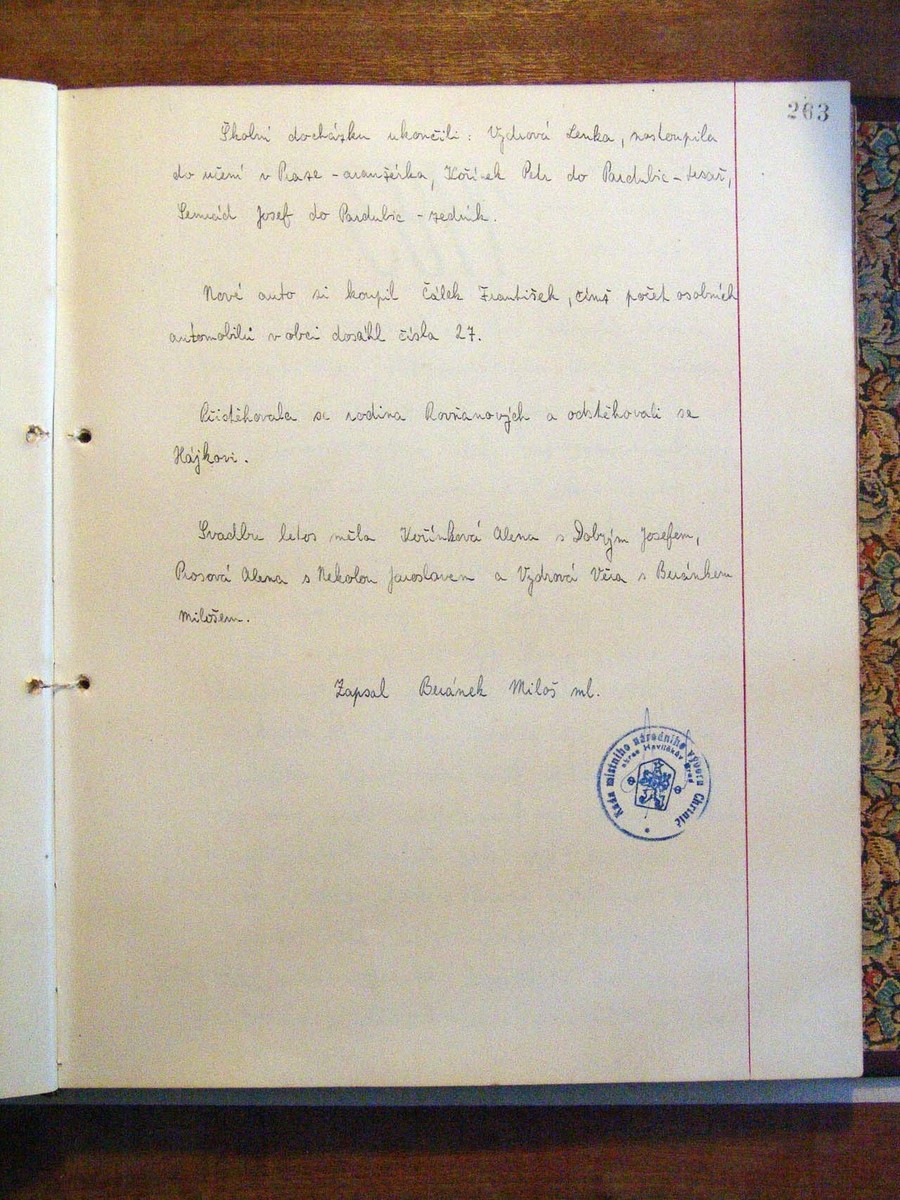 263
Školní docházku ukončili: Vydrová Lenka, nastoupila
do učení v Praze - aranžérka, Kořínek Petr do Pardubic - tesař,
Semrád Josef do Pardubic - zedník.
Nové auto si koupil Čálek František, čímž počet osobních
automobilů v obci dosáhl čísla 27.
Přistěhovala se rodina Rovňanových a odstěhovali se
Hájkovi.
Svadbu letos měla Kořínková Alena s Dobrým Josefem,
Prosová Alena s Nekolou Jaroslavem a Vydrová Věra s Beránkem
Milošem.
Zapsal Beránek Miloš ml.
Rada místního národního výboru Chřenič
okres Havlíčkův Brod